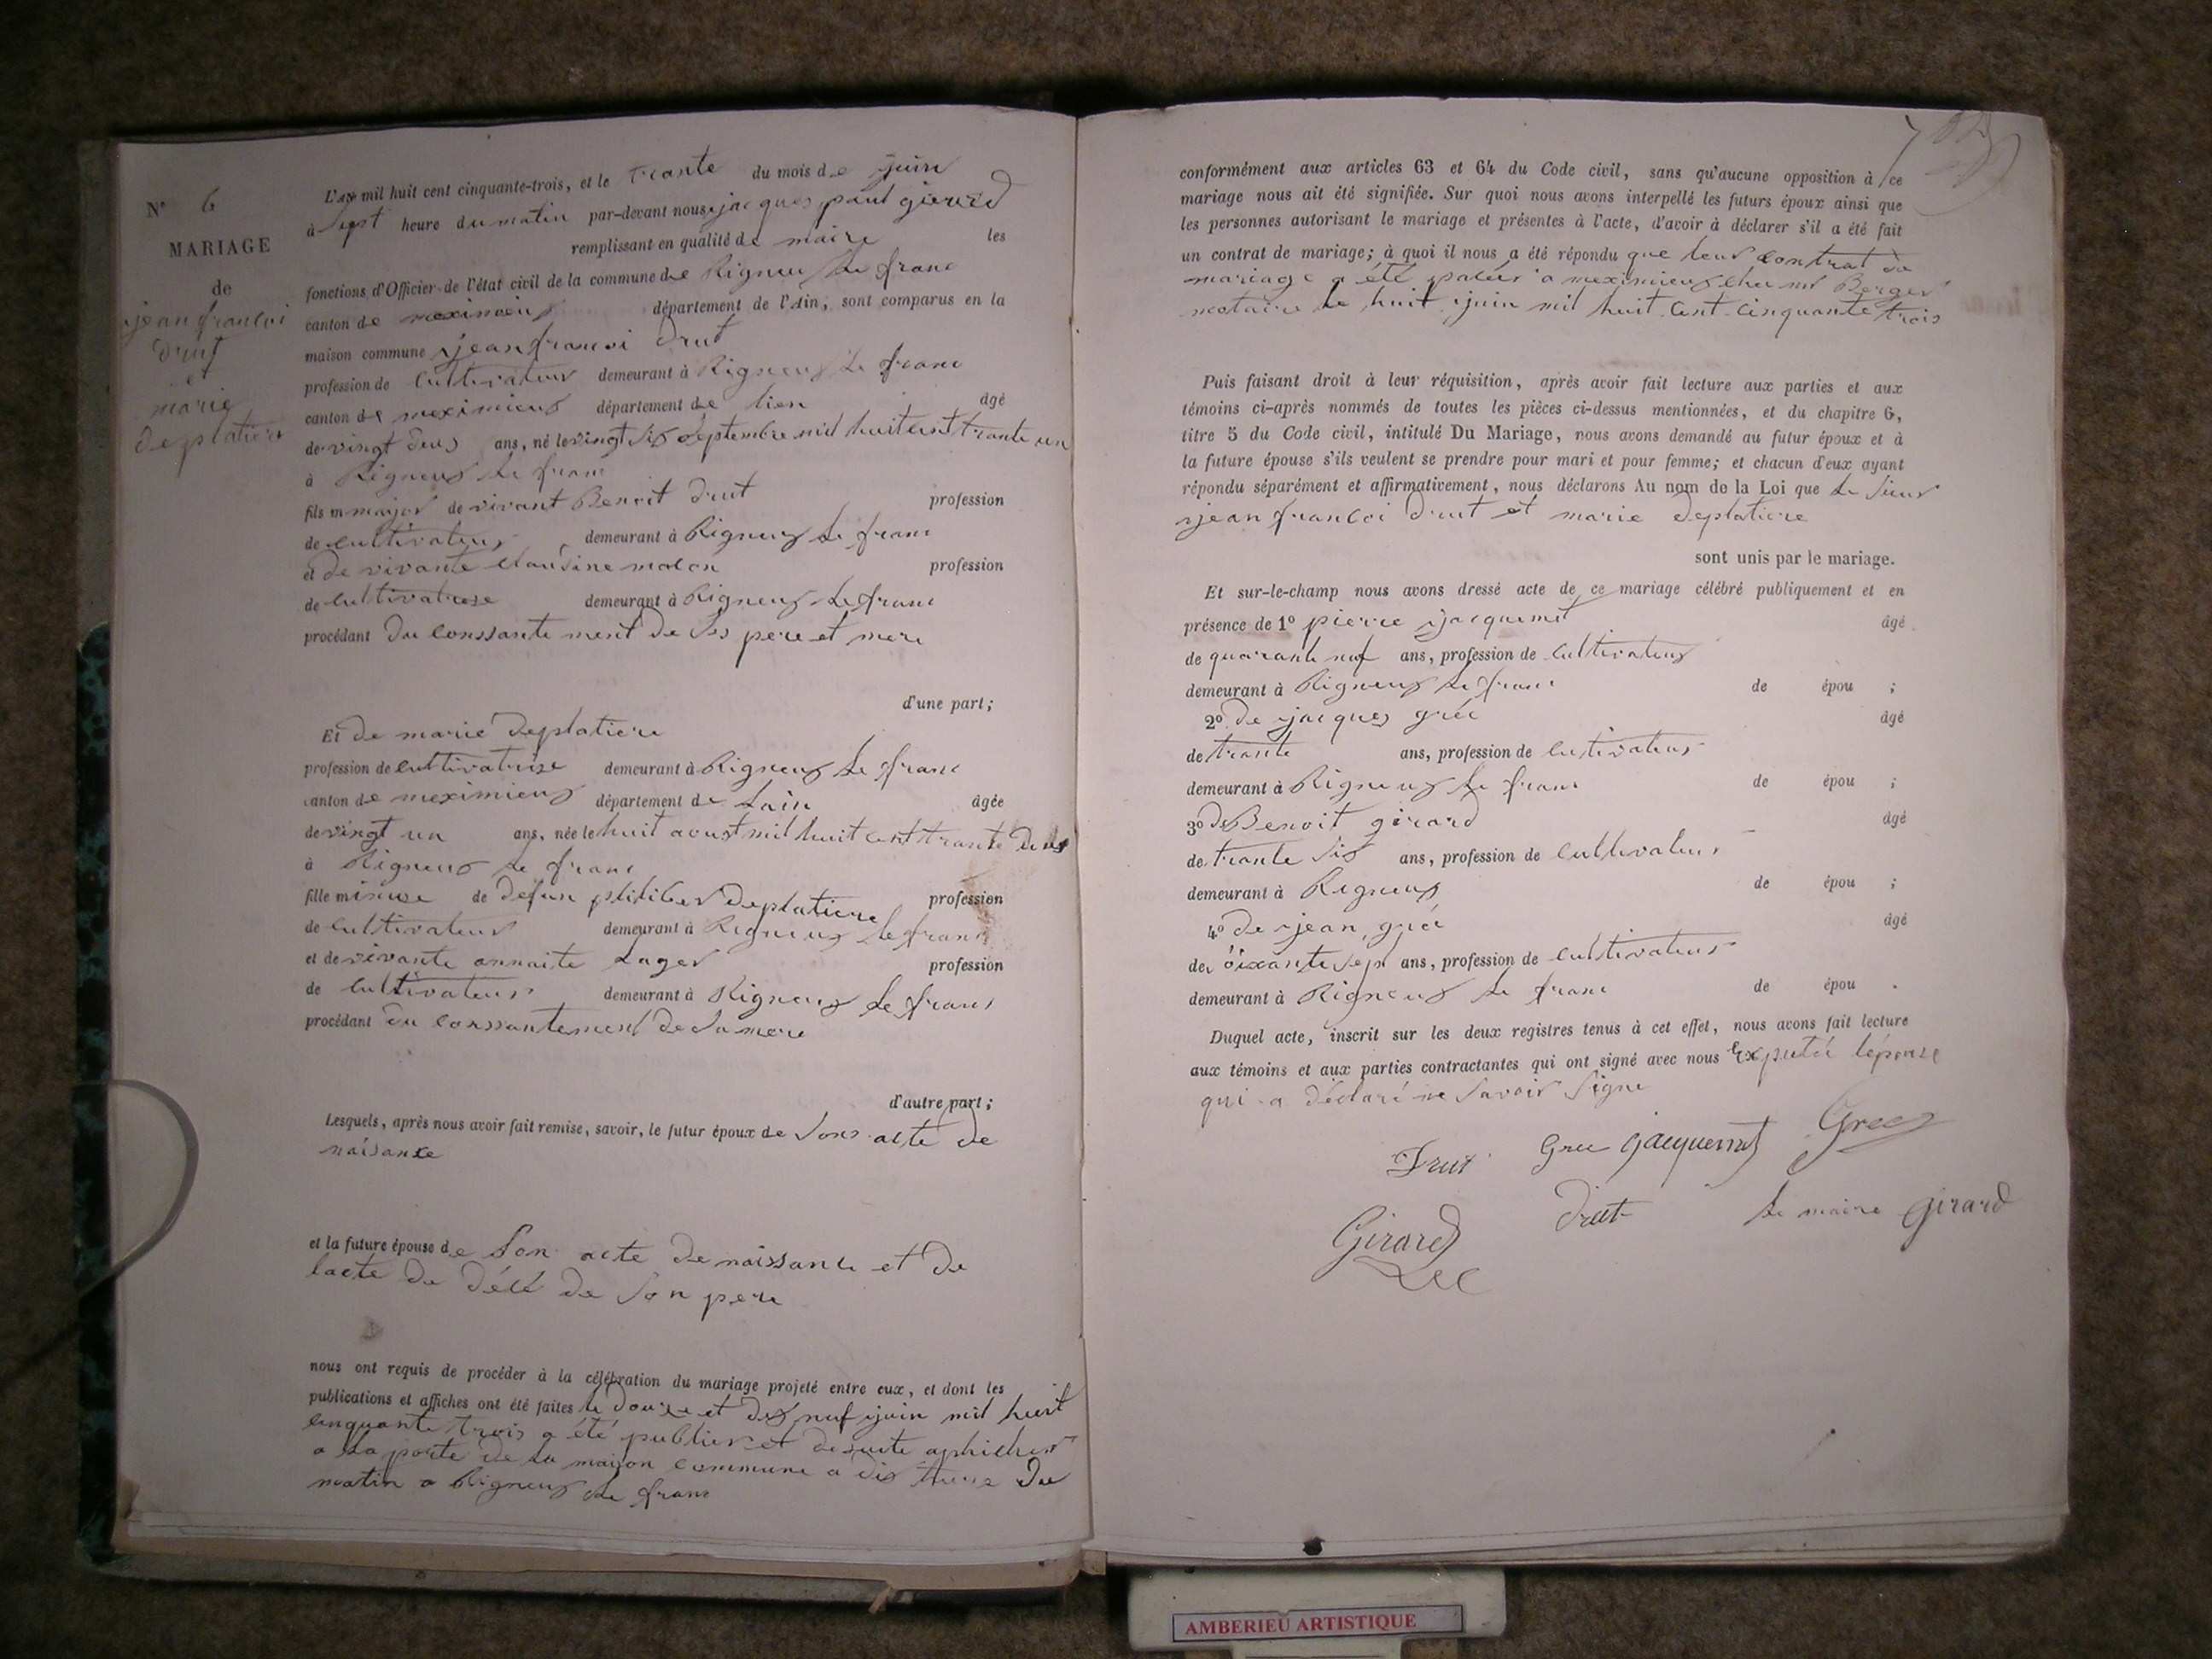 N° 6
MARIAGE
de
jean francoi
drut
et
marie
deplatiere
L'an mil huit cent cinquante-trois, et le trante du mois de juin
à sept heure du matin par-devant nous jacques paul girard
remplissant en qualité de maire les
fonctions d'Officier de l'état civil de la commune de Rigneux le franc
canton de meximieux département de l'Ain, sont comparus en la
maison commune jean francoi drut
profession de cultivateur demeurant à Rigneux le franc
canton de meximieux département de lien âgé
de vingt deus ans, né le vingt six septembre mil huit cent trante un
à Rigneux le franc
fils m major de vivant Benoit drut profession
de cultivateur demeurant à Rigneux le franc
et de vivante claudine profession
de cultivatrise demeurant à Rigneux le franc
procédant du conssantement de ses pere et mere
d'une part;
Et de marie deplatiere
profession de cultivatrise demeurant à Rigneux le franc
canton de meximieux département de lain âgée
de vingt un ans, née le huit aoust mil huit cent trante deus
à Rigneux le franc
fille mineure de defun philiber deplatiere profession
de cultivateur demeurant à Rigneux le franc
et de vivante annaite Luger profession
de cultivateur demeurant à Rigneux le franc
procédant du conssantement de sa mere
d'autre part;
Lesquels, après nous avoir fait remise, savoir, le futur époux de sons acte de
naisance
et la future épouse de son acte de naissance et de
lacte de décé de son pere
nous ont requis de procéder à la célébration du mariage projeté entre eux, et dont les
publications et affiches ont été faites le douze et dix neuf juin mil huit
cinquante trois a été publier et de suite aphicher
a la porte de la maison commune a dix heure du
matin a Rigneux le franc
conformément aux articles 63 et 64 du Code civil, sans qu'aucune opposition à ce
mariage nous ait été signifiée. Sur quoi nous avons interpellé les futurs époux ainsi que
les personnes autorisant le mariage et présentes à l'acte, d'avoir à déclarer s'il a été fait
un contrat de mariage; à quoi il nous a été répondu que leur contrat de
mariage a été a meximieux chez mr Berger
notaire le huit juin mil huit cent cinquante trois
Puis faisant droit à leur réquisition, après avoir fait lecture aux parties et aux
témoins ci-après nommés de toutes les pièces ci-dessus mentionnées, et du chapitre 6,
titre 5 du Code civil, intitulé Du Mariage, nous avons demandé au futur époux et à
la future épouse s'ils veulent se prendre pour mari et pour femme; et chacun d'eux ayant
répondu séparément et affirmativement, nous déclarons Au nom de la Loi que le sieur
jean francoi drut et marie deplatiere
sont unis par le mariage.
Et sur-le-champ nous avons dressé acte de ce mariage célébré publiquement et en
présence de 1° pierre jacquemet âgé
de quarante neuf ans, profession de cultivateur
demeurant à Rigneux le franc de épou ;
2° de jacques grée âgé
de trante ans, profession de cultivateur
demeurant à Rigneux le franc de épou ;
3° de Benoit girard âgé
de trante six ans, profession de cultivateur
demeurant à Rigneux de épou ;
4° de jean grée âgé
de soixante sept ans, profession de cultivateur
demeurant à Rigneux le franc de épou .
Duquel acte, inscrit sur les deux registres tenus à cet effet, nous avons fait lecture
aux témoins et aux parties contractantes qui ont signé avec nous lépouse
qui a déclaré ne savoir signe
Drut Gree Jacquemet Gree
Girard drut le maire girard
AMBERIEU ARTISTIQUE